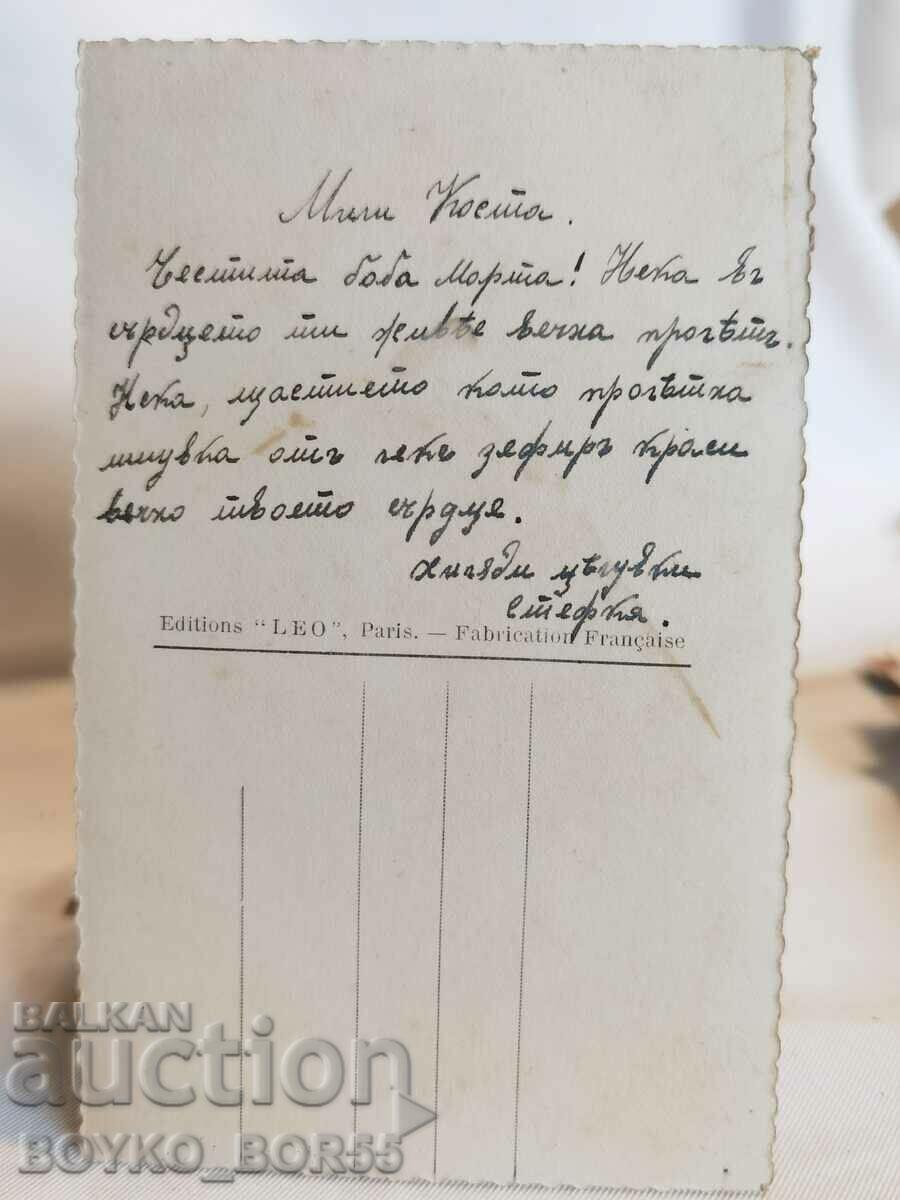 Мили Коста.
Честита баба Марта! Нека въ
сърдцето ти живѣе вечна пролѣть.
Нека, щастието като пролѣтна
милувка отъ лекъ зефиръ краси
вечно твоето сърдце.
Хиляди цѣлувки
Стефка.
Editions "LEO", Paris. — Fabrication Française
BALKAN
auction
BOYKO_BOR55